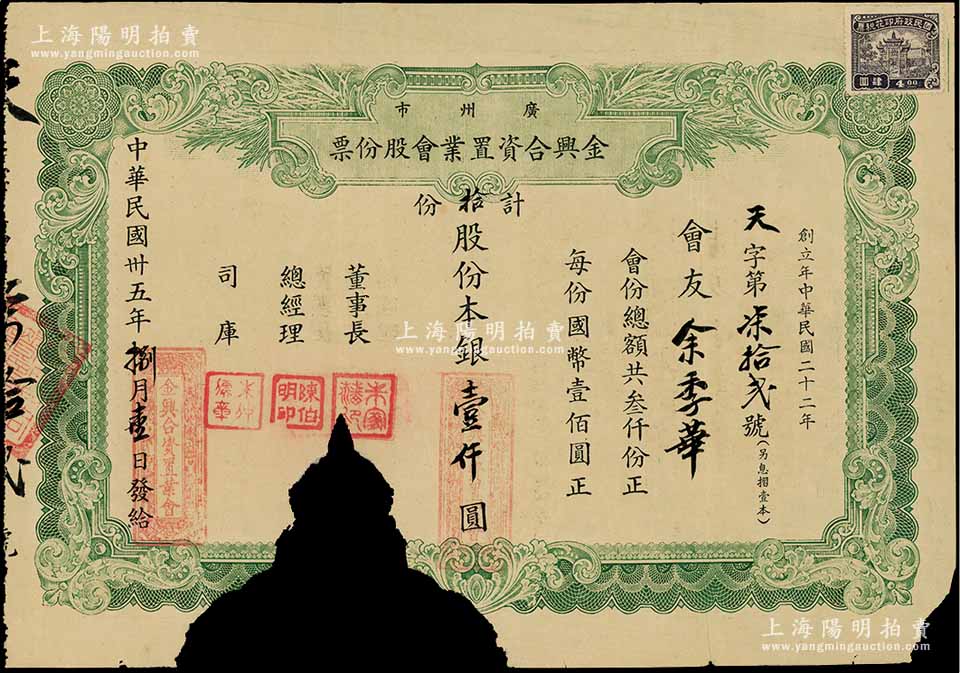 上海陽明拍賣
www.yangmingauction.com
國民政府印花稅票
肆圓
4.00
廣州市
金興合資置業會股份票
創立年中華民國二十二年
天字第柒拾弍號(另息摺壹本)
會友余季華
會份總額共叁仟份正
每份國幣壹佰圓正
計拾份
股份本銀壹仟圓
董事長
總經理
司庫
陳伯明印
中華民國卅五年捌月壹日發給
金興合資置業會
上海陽明拍賣
www.yangmingauction.com
上海陽明拍賣
www.yangmingauction.com